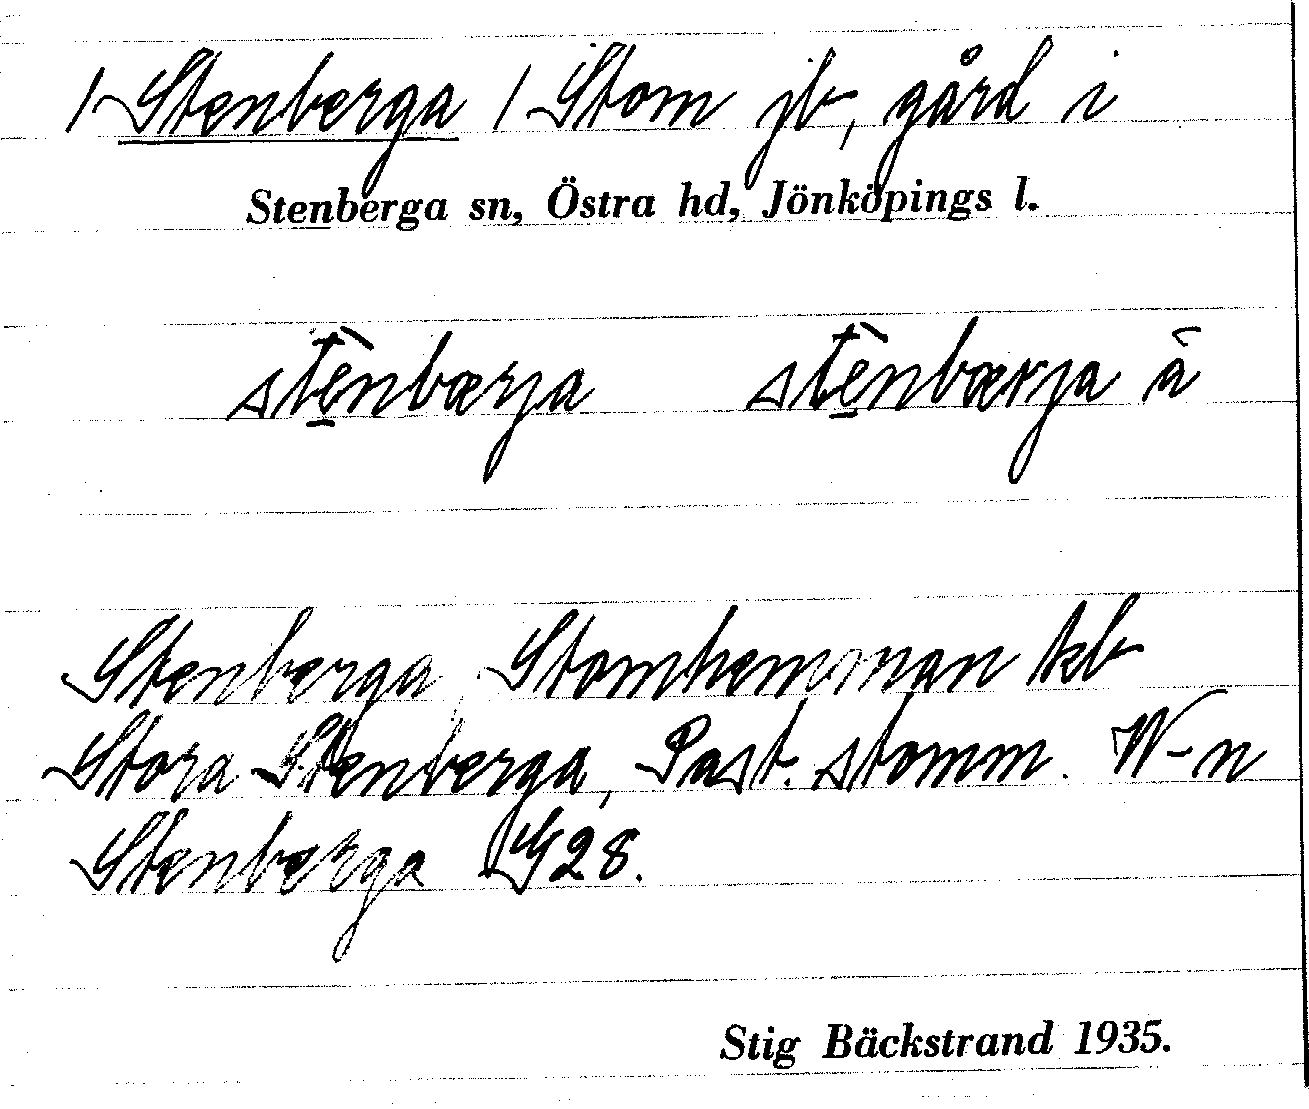 /Stenberga / Stom jb, gård i
Stenberga sn, Östra hd, Jönköpings l.
stènbærja stènbærja ä
Stenberga, Stomhemman kb
Stora Stenberga, Past. stomm. W-n
Stenberga S28.
Stig Bäckstrand 1935.